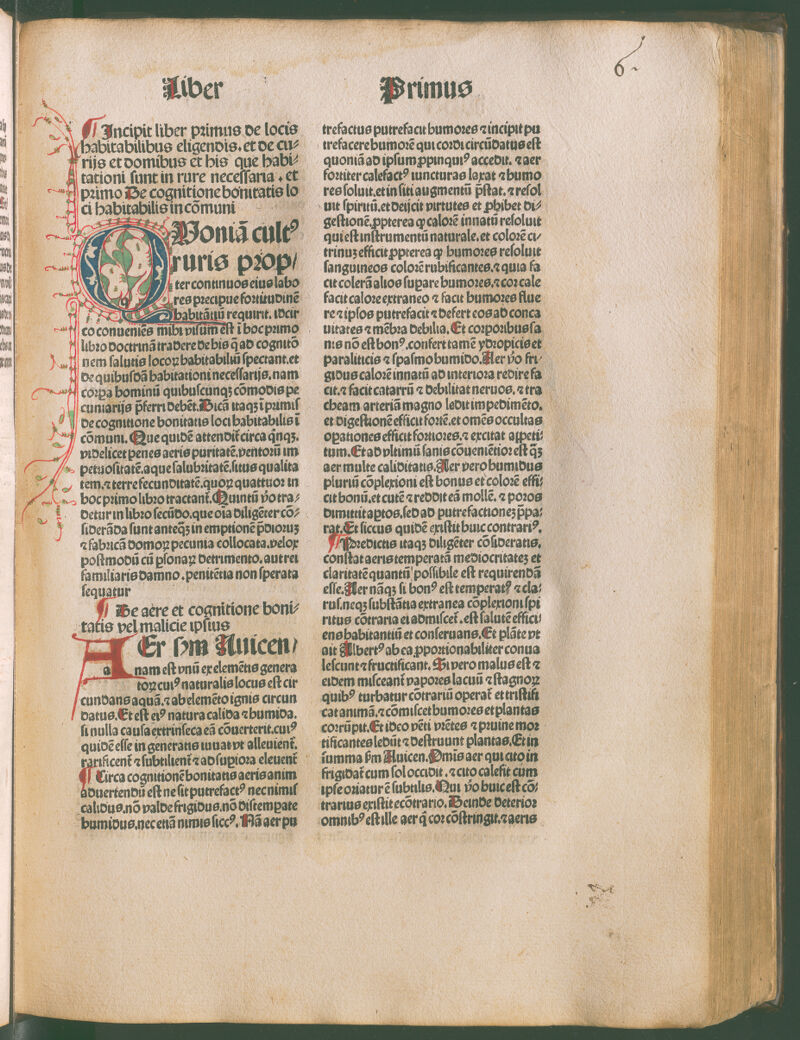 Liber Primus
6.
¶ Incipit liber primus de locis
habitabilibus eligendis. et de cu⸗
rijs et domibus et his que habi⸗
tationi sunt in rure necessaria . et
primo De cognitione bonitatis lo
ci habitabilis in cōmuni
QVoniā cultꝰ
ruris prop/
ter continuos eius labo
res precipue fortitudinē
habitātiū requirit. idcir
co conueniēs mihi visum est ī hoc primo
libro doctrinā tradere de his q̄ ad cognitō
nem salutis locoꝝ habitabiliū spectant. et
de quibusdā habitationi necessarijs. nam
corꝑa hominū quibuscunqꝫ cōmodis pe
cuniarijs p̄ferri debēt. Dicā itaqꝫ ī primis
de cognitione bonitatis loci habitabilis ī
cōmuni. Que quidē attendit᷑ circa q̄nqꝫ.
videlicet penes aeris puritatē. ventorū im
petuositatē. aque salubritatē. situs qualita
tem. ⁊ terre fecunditatē. quoꝝ quattuor in
hoc primo libro tractant᷑. Quintū ꝟo tra⸗
detur in libro secūdo. que oīa diligēter cō⸗
siderāda sunt anteqꝫ in emptionē p̄dioruꝫ
⁊ fabricā domoꝝ pecunia collocata. velox
postmodū cū ꝑsonaꝝ detrimento. aut rei
familiaris damno . penitētia non sperata
sequatur
¶ De aere et cognitione boni⸗
tatis vel malicie ipsius
AEr ẜm Auicen/
nam est vnū ex elemētis genera
toꝝ cuiꝰ naturalis locus est cir
cundans aquā. ⁊ ab elemēto ignis circun
datus. Et est eiꝰ natura calida ⁊ humida.
si nulla causa extrinseca eā cōuerterit. cuiꝰ
quidē esse in generatis iuuat vt alleuient᷑.
rarificent᷑ ⁊ subtilient᷑ ⁊ ad suꝑiora eleuent᷑
¶ Circa cognitionē bonitatis aeris anim
aduertendū est ne sit putrefactꝰ nec nimis
calidus. nō valde frigidus. nō distemꝑate
humidus. nec etiā nimis siccꝰ. Nā aer pu
trefactus putrefacit humores ⁊ incipit pu
trefacere humorē qui cordi circūdatus est
quoniā ad ipsum ꝓpinquiꝰ accedit. ⁊ aer
fortiter calefactꝰ iuncturas laxat ⁊ humo
res soluit. et in siti augmentū p̄stat. ⁊ resol
uit spiritū. et deijcit virtutes et ꝓhibet di⸗
gestionē. ꝓpterea qꝙ calorē innatū resoluit
qui est instrumentū naturale. et colorē ci⸗
trinuꝫ efficit ꝓpterea qꝙ humores resoluit
sanguineos colorē rubificantes. ⁊ quia fa
cit colerā alios suꝑare humores. ⁊ cor cale
facit calore extraneo ⁊ facit humores flue
re ⁊ ipsos putrefacit ⁊ defert eos ad conca
uitates ⁊ mēbra debilia. Et corporibus sa
nis nō est bonꝰ. confert tamē ydropicis et
paraliticis ⁊ spasmo humido. Aer ꝟo fri⸗
gidus calorē innatū ad interiora redire fa
cit. ⁊ facit catarrū ⁊ debilitat neruos. ⁊ tra
cheam arteriā magno ledit impedimēto.
et digestionē efficit fortē. et omēs occultas
oꝑationes efficit fortiores. ⁊ excitat appeti⸗
tum. Et ad vltimū sanis cōuenientior est qꝫ
aer multe caliditatis. Aer vero humidus
pluriū cōplexioni est bonus et colorē effi⸗
cit bonū. et cutē ⁊ reddit eā mollē. ⁊ poros
dimittit aptos. sed ad putrefactioneꝫ p̄pa⸗
rat. Et siccus quidē existit huic contrariꝰ.
¶ Predictis itaqꝫ diligēter cōsideratis.
constat aeris temperatā mediocritateꝫ et
claritatē quantū possibile est requirendā
esse. Aer nāqꝫ si bonꝰ est temperatꝰ ⁊ cla⸗
rus. neqꝫ substātia extranea cōplexioni spi
ritus cōtraria ei admiscet᷑. est salutē effici⸗
ens habitantiū et conseruans. Et plāte vt
ait Albertꝰ ab ea ꝓportionabiliter conua
lescunt ⁊ fructificant. Si vero malus est ⁊
eidem misceant᷑ vapores lacuū ⁊ stagnoꝝ
quibꝰ turbatur cōtrariū operat᷑ et tristifi
cat animā. ⁊ cōmiscet humores et plantas
corrūpit. Et ideo vēti vrētes ⁊ pruine mor
tificantes ledūt ⁊ destruunt plantas. Et in
summa ẜm Auicen. Omīs aer qui cito in
frigidat᷑ cum sol occidit. ⁊ cito calefit cum
ipse oriatur ē subtilis. Qui ꝟo huic est cō⸗
trarius existit ecōtrario. Deinde deterior
omnibꝰ est ille aer q̄ cor cōstringit. ⁊ aeris